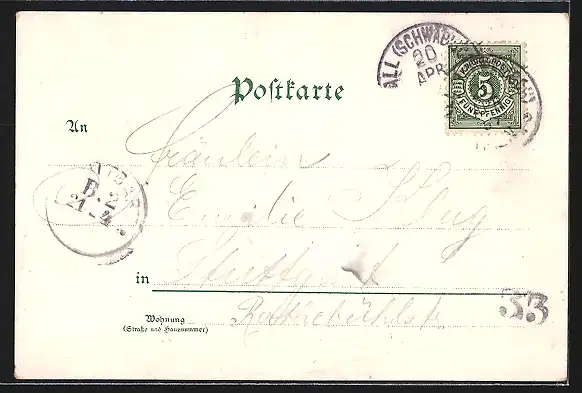 ALL (SCHWÄB.
20
APR
5
FÜNF PFENNIG
Postkarte
An
Fräulein
Emilie Klug
B. 2
21-4
in Stuttgart
Rothebühlstr
33
Wohnung
(Straße und Hausnummer)